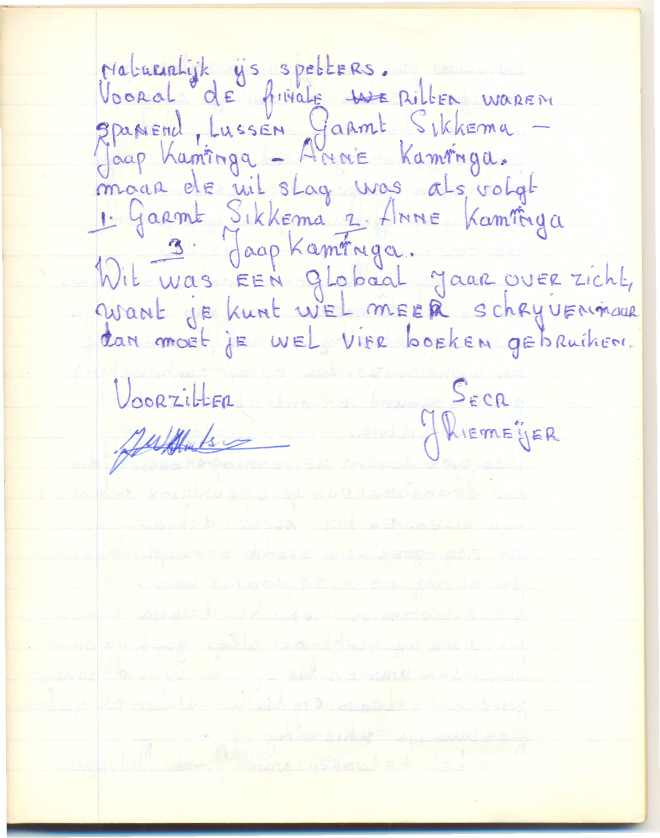 Natuurlijk ijs spetters.
Vooral de finale we ritten waren
spanend, tussen Garmt Sikkema -
Jaap Kaminga - Anne Kaminga.
maar de uit slag was als volgt
1. Garmt Sikkema 2. Anne Kaminga
3. Jaap Kaminga.
Wit was een globaal jaar over zicht,
want je kunt wel meer schrijven maar
dan moet je wel vier boeken gebruiken.
Voorzitter Secr
J Riemeijer